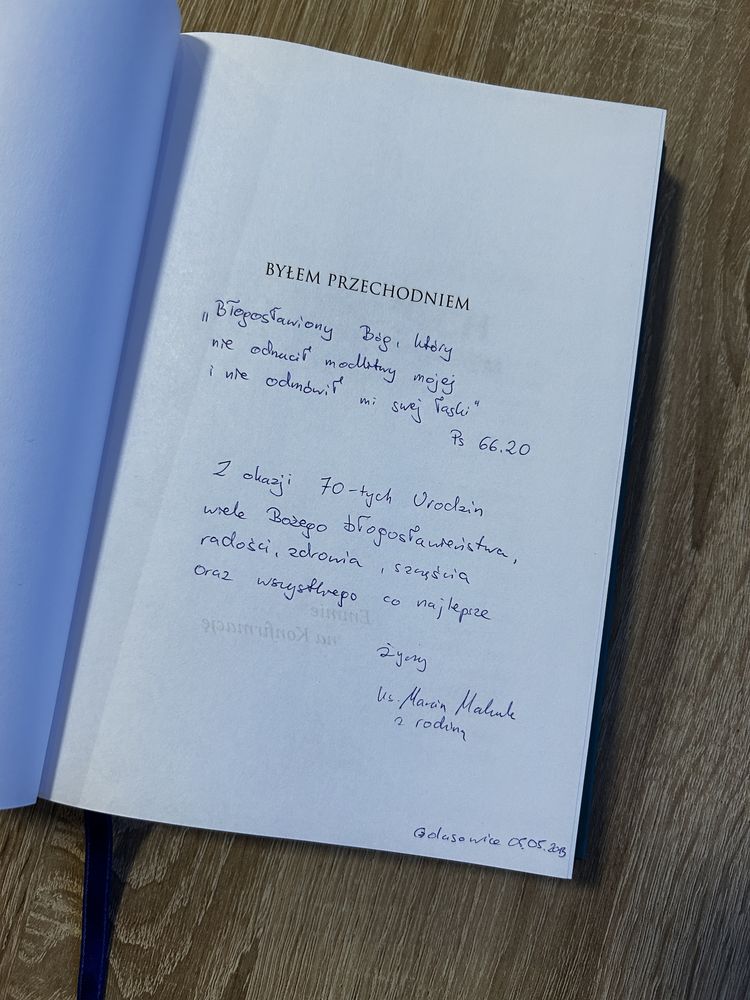 BYŁEM PRZECHODNIEM
„Błogosławiony Bóg, który
nie odrzucił modlitwy mojej
i nie odmówił mi swej łaski"
Ps 66.20
Z okazji 70-tych Urodzin
wiele Bożego błogosławieństwa,
radości, zdrowia, szczęścia
oraz wszystkiego co najlepsze
Emmie
na Konfirmację
życzy
ks. Marcin
z rodziną
Golasowice 05.05.2013